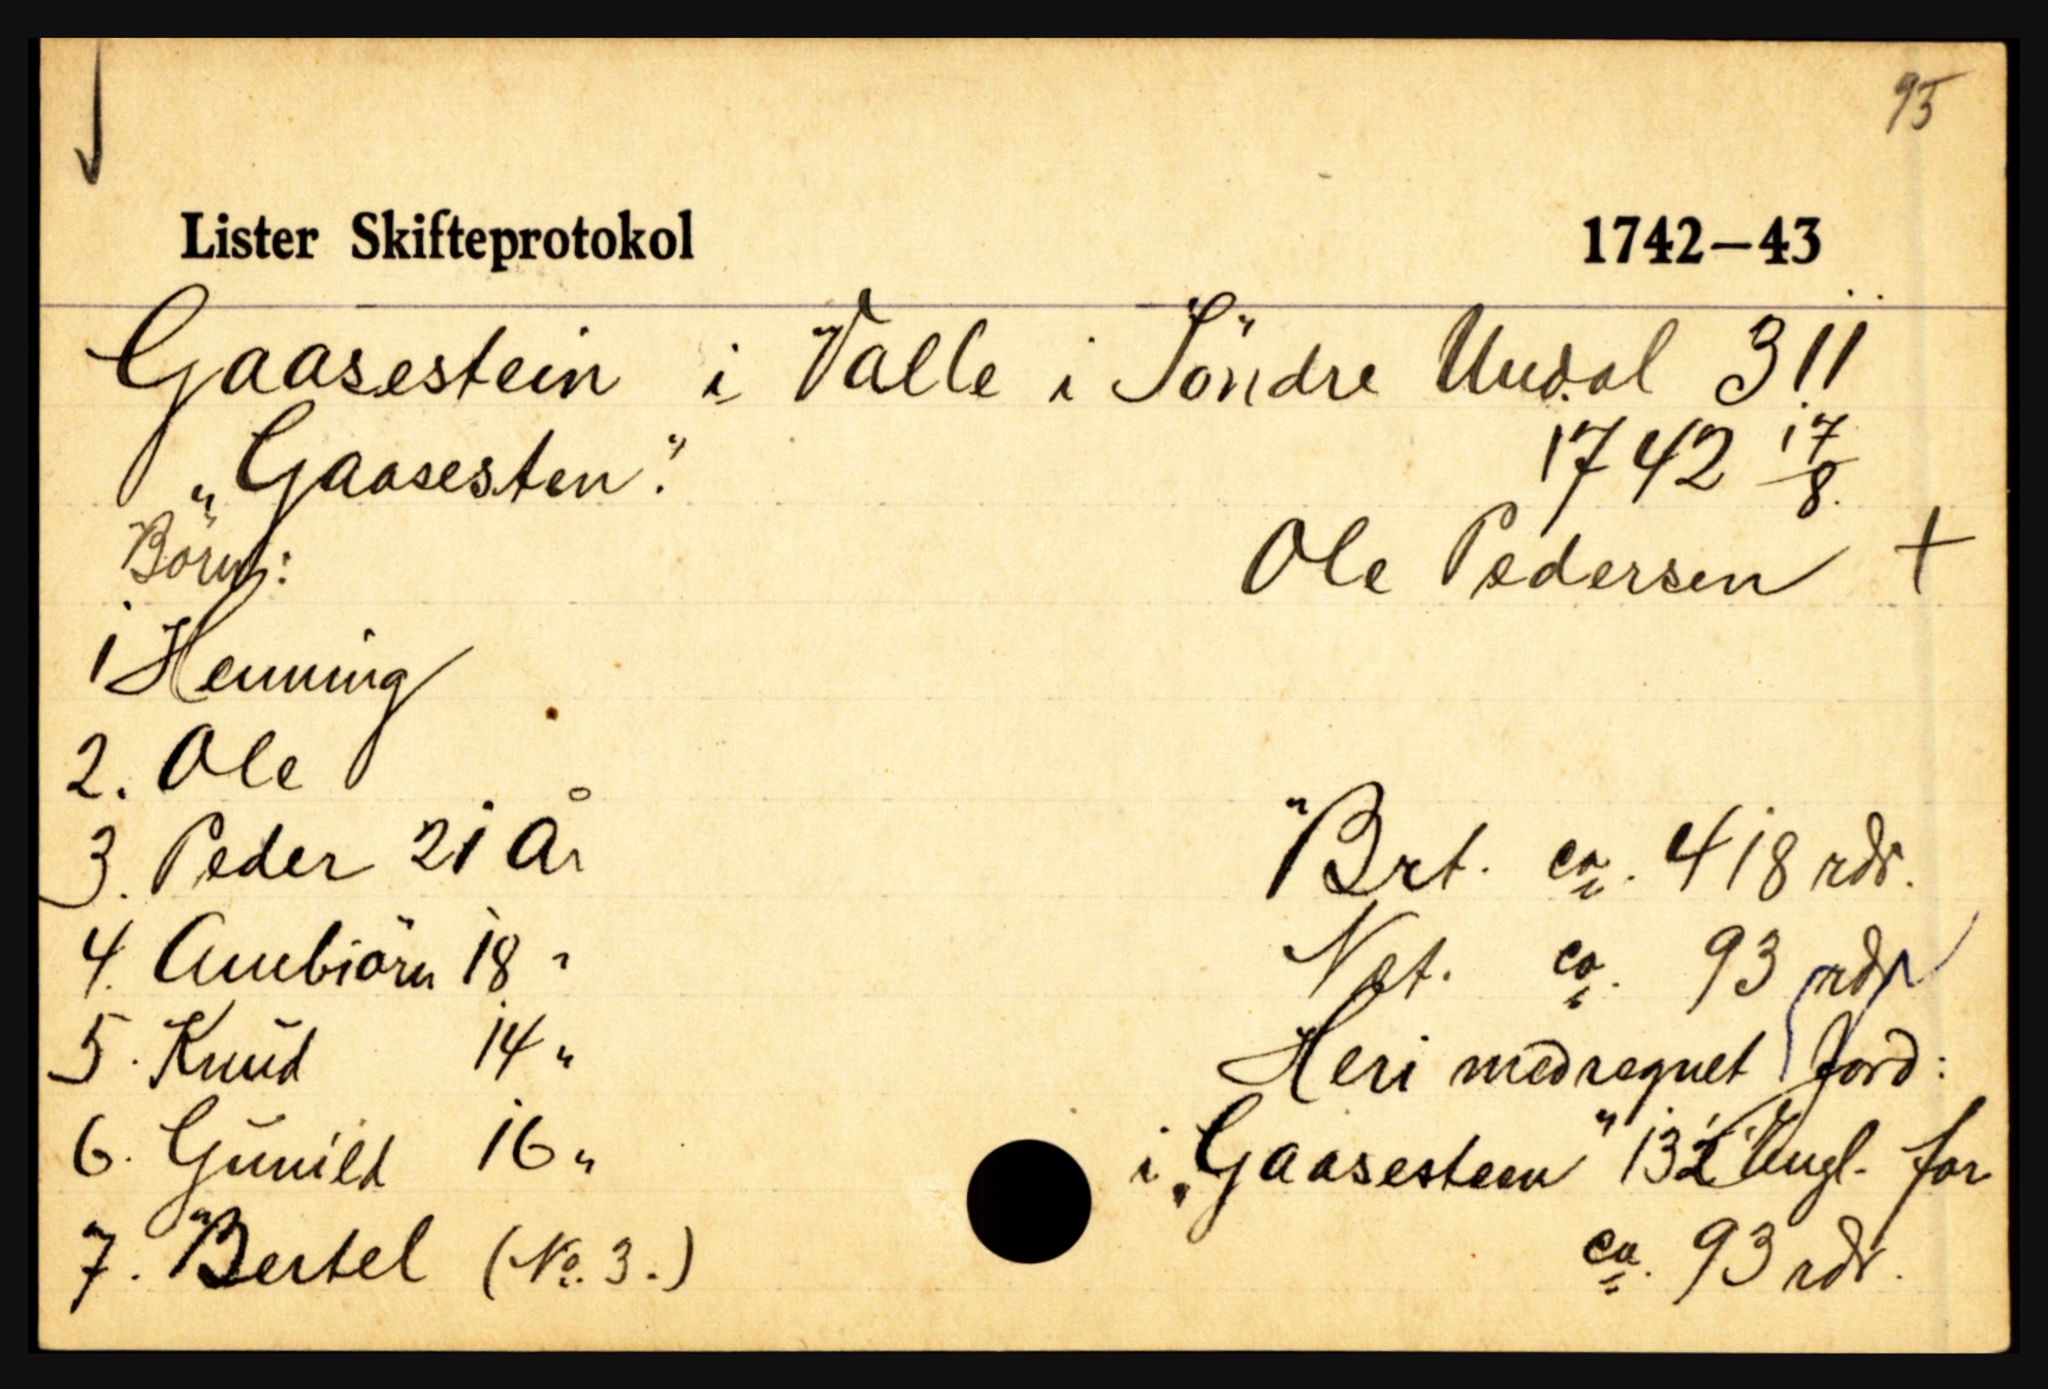 95
Lister Skifteprotokol 1742–43
Gaasestein i Valle i Söndre Undal 311
„Gaasesten". 1742 17/8.
Börn: Ole Pedersen +
1 Henning
2. Ole
3. Peder 21 År Brt. ca. 418 rdr.
4. Aunbiörn 18 " Net. ca. 93 rdr
5. Knud 14 " Heri medregnet Jord:
6. Gunild 16 " i „Gaasesteen" 1 3/2 Engl. for
7. Bertel (No. 3.) ca. 93 rdr.